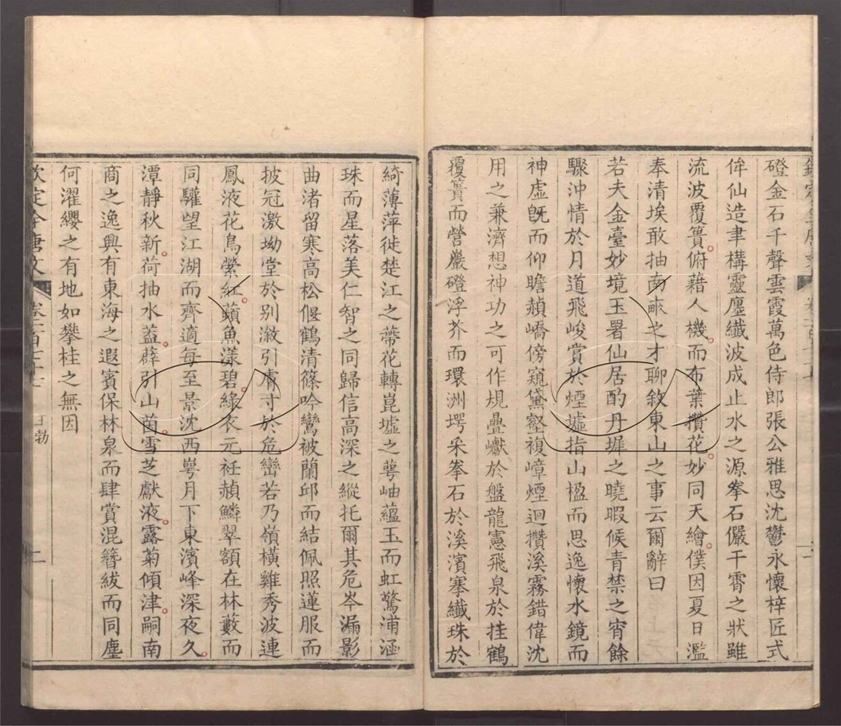 磴金石千聲雲霞萬色侍郎張公雅思沈鬱永懷梓匠式
侔仙造聿構靈塵纖波成止水之源拳石儼干霄之狀雖
流波覆簣俯藉人機而布葉攢花妙同天繪僕因夏日濫
奉清埃敢抽南畝之才聊敘東山之事云爾辭曰
若夫金臺妙境玉署仙居酌丹墀之曉暇候青禁之宵餘
驟沖情於月道飛峻賞於煙墟指山楹而思逸懷水鏡而
神虛旣而仰瞻赬嶠傍窺黛壑複嶂煙迴攢溪霧錯偉沈
用之兼濟想神功之可作規疊巘於盤龍憲飛泉於挂鶴
覆簣而營巖磴浮芥而環洲堮采拳石於溪濱搴纖珠於
綺薄萍徙楚江之蔕花轉崑墟之萼岫蘊玉而虹驚浦涵
珠而星落美仁智之同歸信高深之縱托爾其危岑漏影
曲渚留寒高松偃鶴清篠吟鸞被蘭邱而結佩照蓮服而
披冠激坳堂於別漵引膚寸於危巒若乃嶺橫雞秀波連
鳳液花鳥縈紅蘋魚漾碧綠衣元衽赬鱗翠額在林藪而
同驩望江湖而齊適每至景沈西崿月下東濱峰深夜久
潭靜秋新荷抽水蓋薜引山茵雪芝獻液露菊傾津嗣南
商之逸興有東海之遐賓保林泉而肆賞混簪紱而同塵
何濯纓之有地如攀桂之無因
欽定全唐文 卷一百七十七 王勃 二